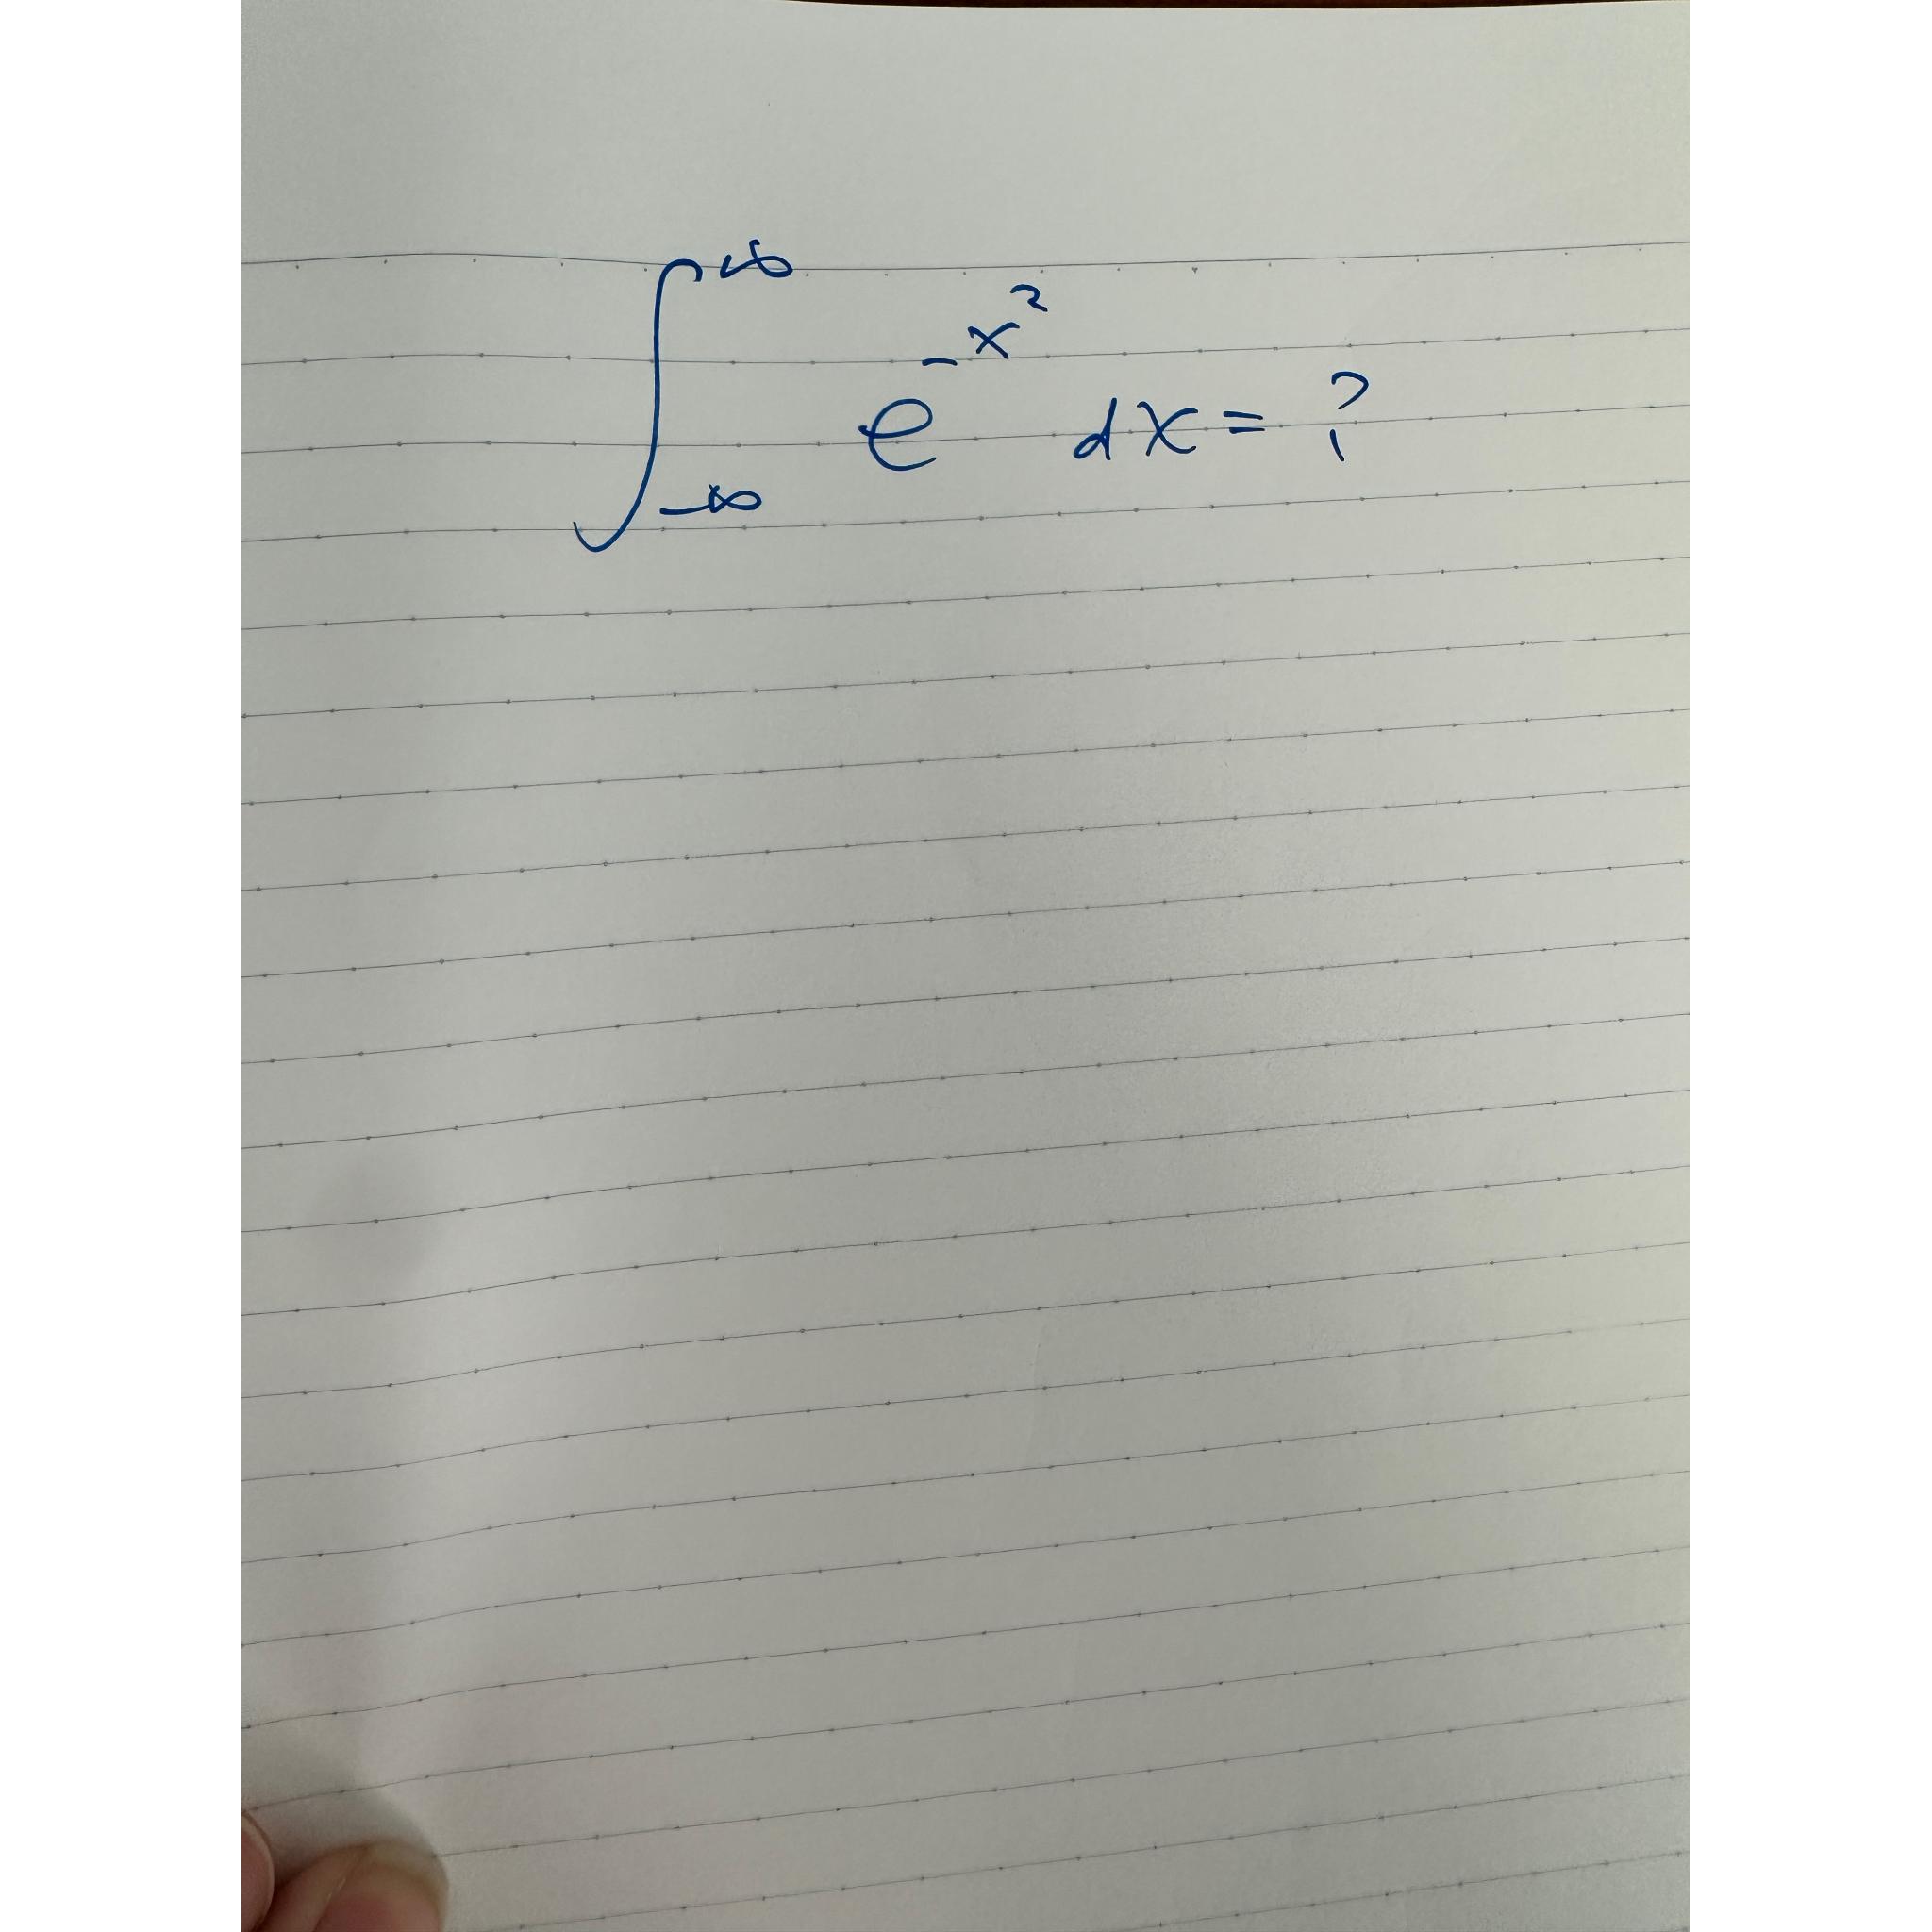 ∫_{-∞}^{∞} e^{-x^2} dx = ?